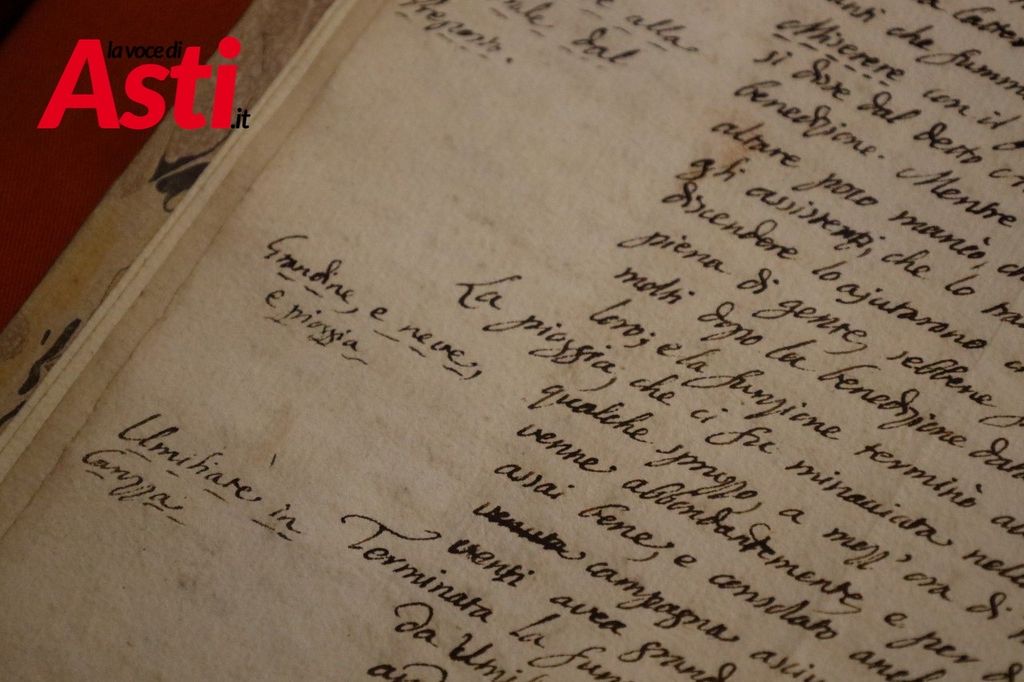 la voce di
Asti.it
alla
dal
Preposto.
Grandine, e neve,
e pioggia
Umiliate in
Carozza.
che fummo
Miserere con il
si dise dal detto
benedizione. Mentre
altare poco mancò, ch
gli assistenti, che lo
discendere lo ajutarono
piena di gente, sebbene
molti dopo la benedizione
loro; e la funzione terminò
La pioggia, che ci fu minacciata nell
qualche spruzzo, a mezz'ora di
venne abbondantemente, e per
assai bene, e consolato
campagna
venti avea grand
Terminata la fun
da Umi